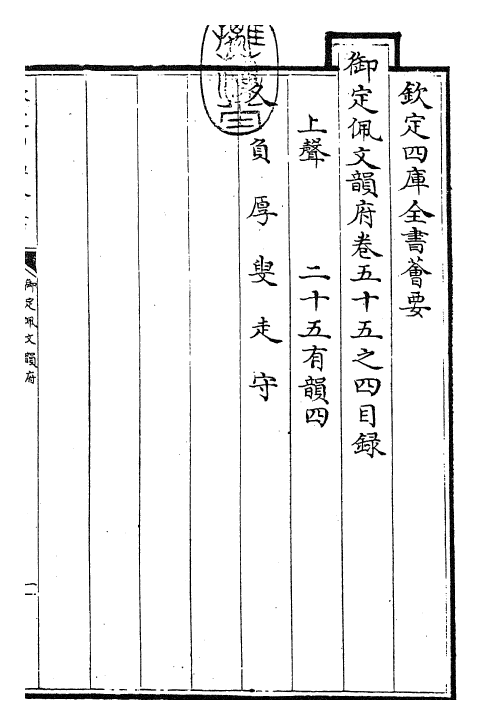 欽定四庫全書薈要
御定佩文韻府卷五十五之四目録
上聲　二十五有韻四
久負厚叟走守
御定佩文韻府